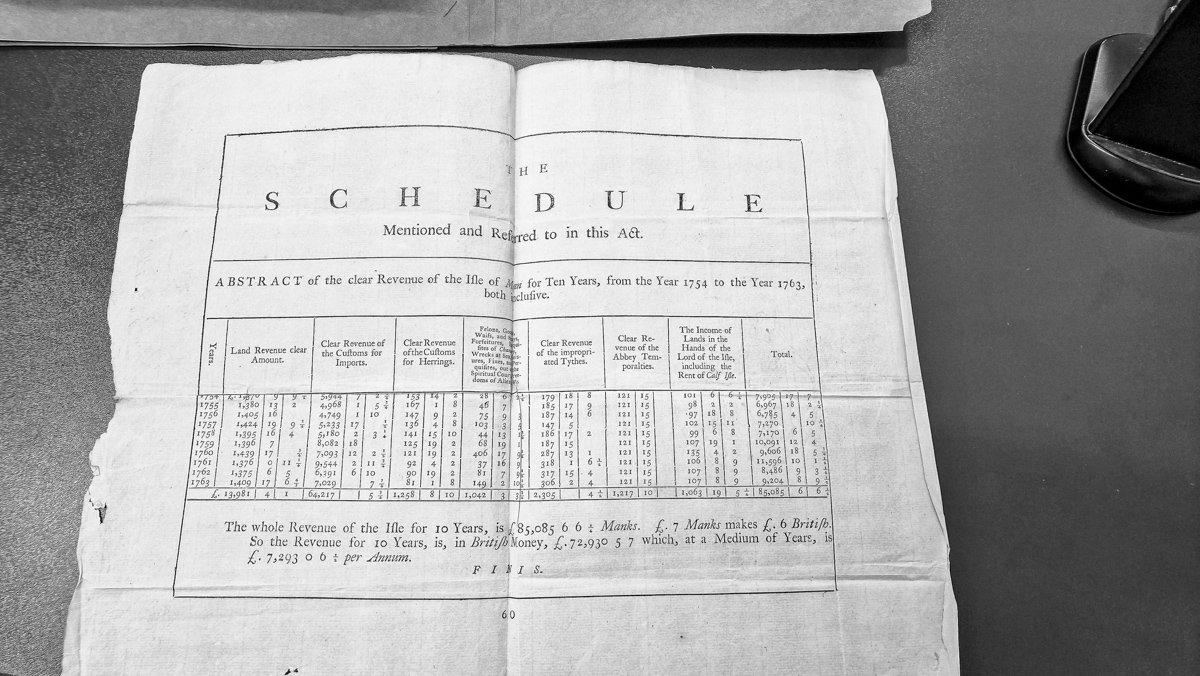 THE
SCHEDULE
Mentioned and Referred to in this Act.
ABSTRACT of the clear Revenue of the Iſle of Man for Ten Years, from the Year 1754 to the Year 1763,
both incluſive.
Years.
Land Revenue clear
Amount.
Clear Revenue of
the Cuſtoms for
Imports.
Clear Revenue
of the Cuſtoms
for Herrings.
Felons,
Waifs, and
Forfeitures,
ſites of
Wrecks at Sea,
ures, Fines,
quiſites, out
Spiritual Court
doms of
Clear Revenue
of the impropri-
ated Tythes.
Clear Re-
venue of the
Abbey Tem-
poralties.
The Income of
Lands in the
Hands of the
Lord of the Iſle,
including the
Rent of Calf Iſle.
Total.
1754 £. 1,370 9 9 5,944 7 2 153 14 2 28 6 179 18 8 121 15 101 6 6 7,905 17 7
1755 1,380 13 2 4,968 1 5 ½ 167 1 8 46 7 185 17 9 121 15 98 2 2 6,967 18 2
1756 1,405 16 4,749 1 10 147 9 2 75 9 3 187 14 6 121 15 97 18 8 6,785 4 5
1757 1,424 19 9 5,233 17 136 4 8 103 3 5 147 5 121 15 102 15 11 7,270 10
1758 1,395 16 4 5,180 2 3 141 15 10 44 13 186 17 2 121 15 99 6 8 7,170 6 5
1759 1,396 7 8,082 18 125 19 2 68 19 1 187 15 121 15 107 19 1 10,091 12 4
1760 1,439 17 7,093 12 2 121 19 2 406 17 287 13 1 121 15 135 4 2 9,606 18 5
1761 1,376 0 11 9,544 2 11 92 4 2 37 16 318 1 6 121 15 106 8 9 11,596 10 1
1762 1,375 6 5 6,391 6 10 90 19 2 81 7 317 15 4 121 15 107 8 9 8,486 9 3
1763 1,409 17 6 7,029 7 81 1 8 149 2 306 2 4 121 15 107 8 9 9,204 8 9
£. 13,981 4 1 64,217 5 ½ 1,258 8 10 1,042 3 2,305 4 1,217 10 1,063 19 5 85,085 6 6
The whole Revenue of the Iſle for 10 Years, is £85,085 6 6 Manks. £. 7 Manks makes £. 6 Britiſh.
So the Revenue for 10 Years, is, in Britiſh Money, £.72,930 5 7 which, at a Medium of Years, is
£. 7,293 0 6 per Annum.
FINIS.
60